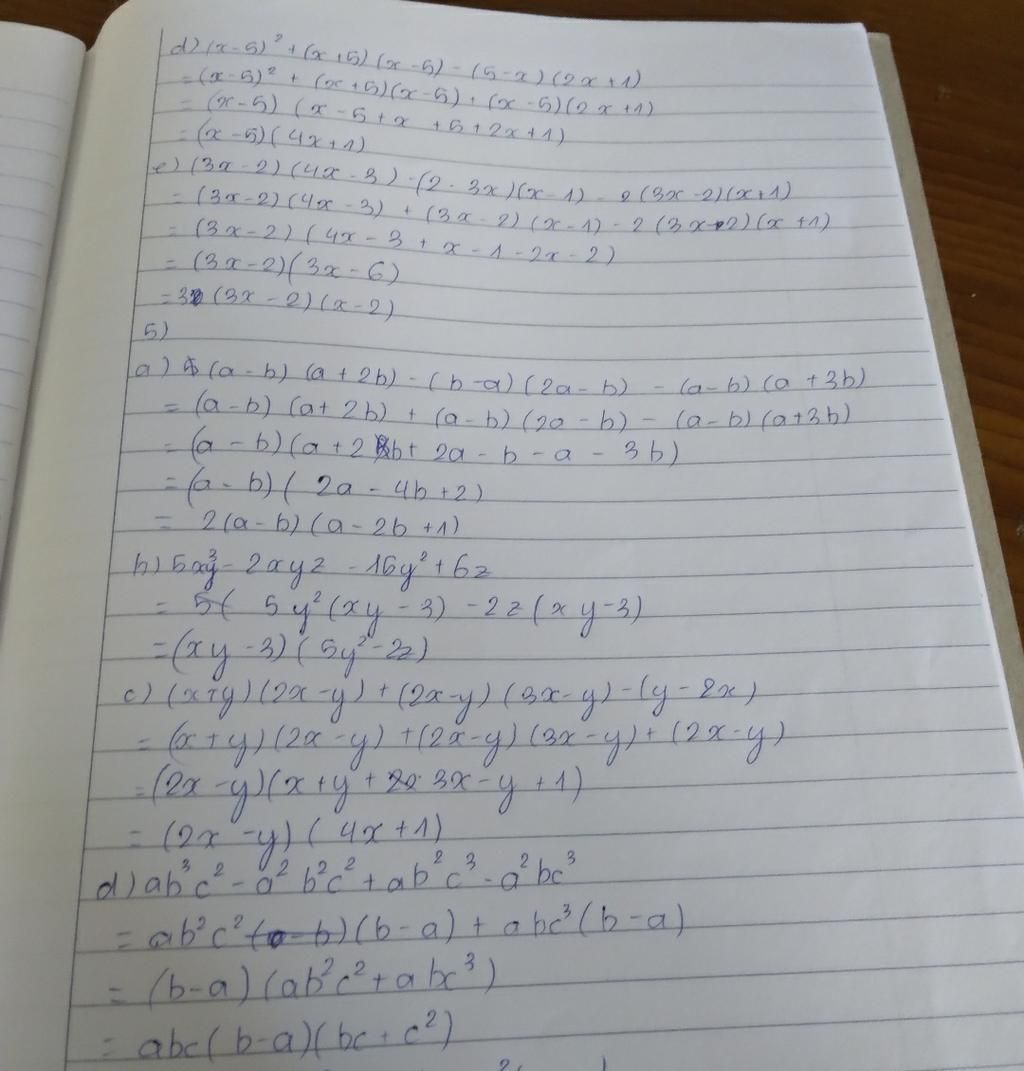 d) (x-5)² + (x+5)(x-5) - (5-x)(2x+1)
= (x-5)² + (x+5)(x-5) + (x-5)(2x+1)
= (x-5) (x-5+x +5+2x+1)
= (x-5)(4x+1)
e) (3x-2)(4x-3) - (2-3x)(x-1) - 2(3x-2)(x+1)
= (3x-2)(4x-3) + (3x-2)(x-1) - 2(3x-2)(x+1)
= (3x-2)(4x-3+x-1-2x-2)
= (3x-2)(3x-6)
= 3(3x-2)(x-2)
5)
a) (a-b)(a+2b) - (b-a)(2a-b) - (a-b)(a+3b)
= (a-b)(a+2b) + (a-b)(2a-b) - (a-b)(a+3b)
= (a-b)(a+2b+2a-b-a-3b)
= (a-b)(2a-4b+2)
= 2(a-b)(a-2b+1)
b) 5xy³ - 2xyz - 16y² + 6z
= 5( 5y²(xy-3) - 2z(xy-3)
= (xy-3)(5y²-2z)
c) (x+y)(2x-y) + (2x-y)(3x-y) - (y-2x)
= (x+y)(2x-y) + (2x-y)(3x-y) + (2x-y)
= (2x-y)(x+y+ 3x-y+1)
= (2x-y)(4x+1)
d) ab³c² - a²b²c² + ab²c³ - a²bc³
= ab²c² (b-a) + abc³(b-a)
= (b-a)(ab²c² + abc³)
= abc(b-a)(bc+c²)